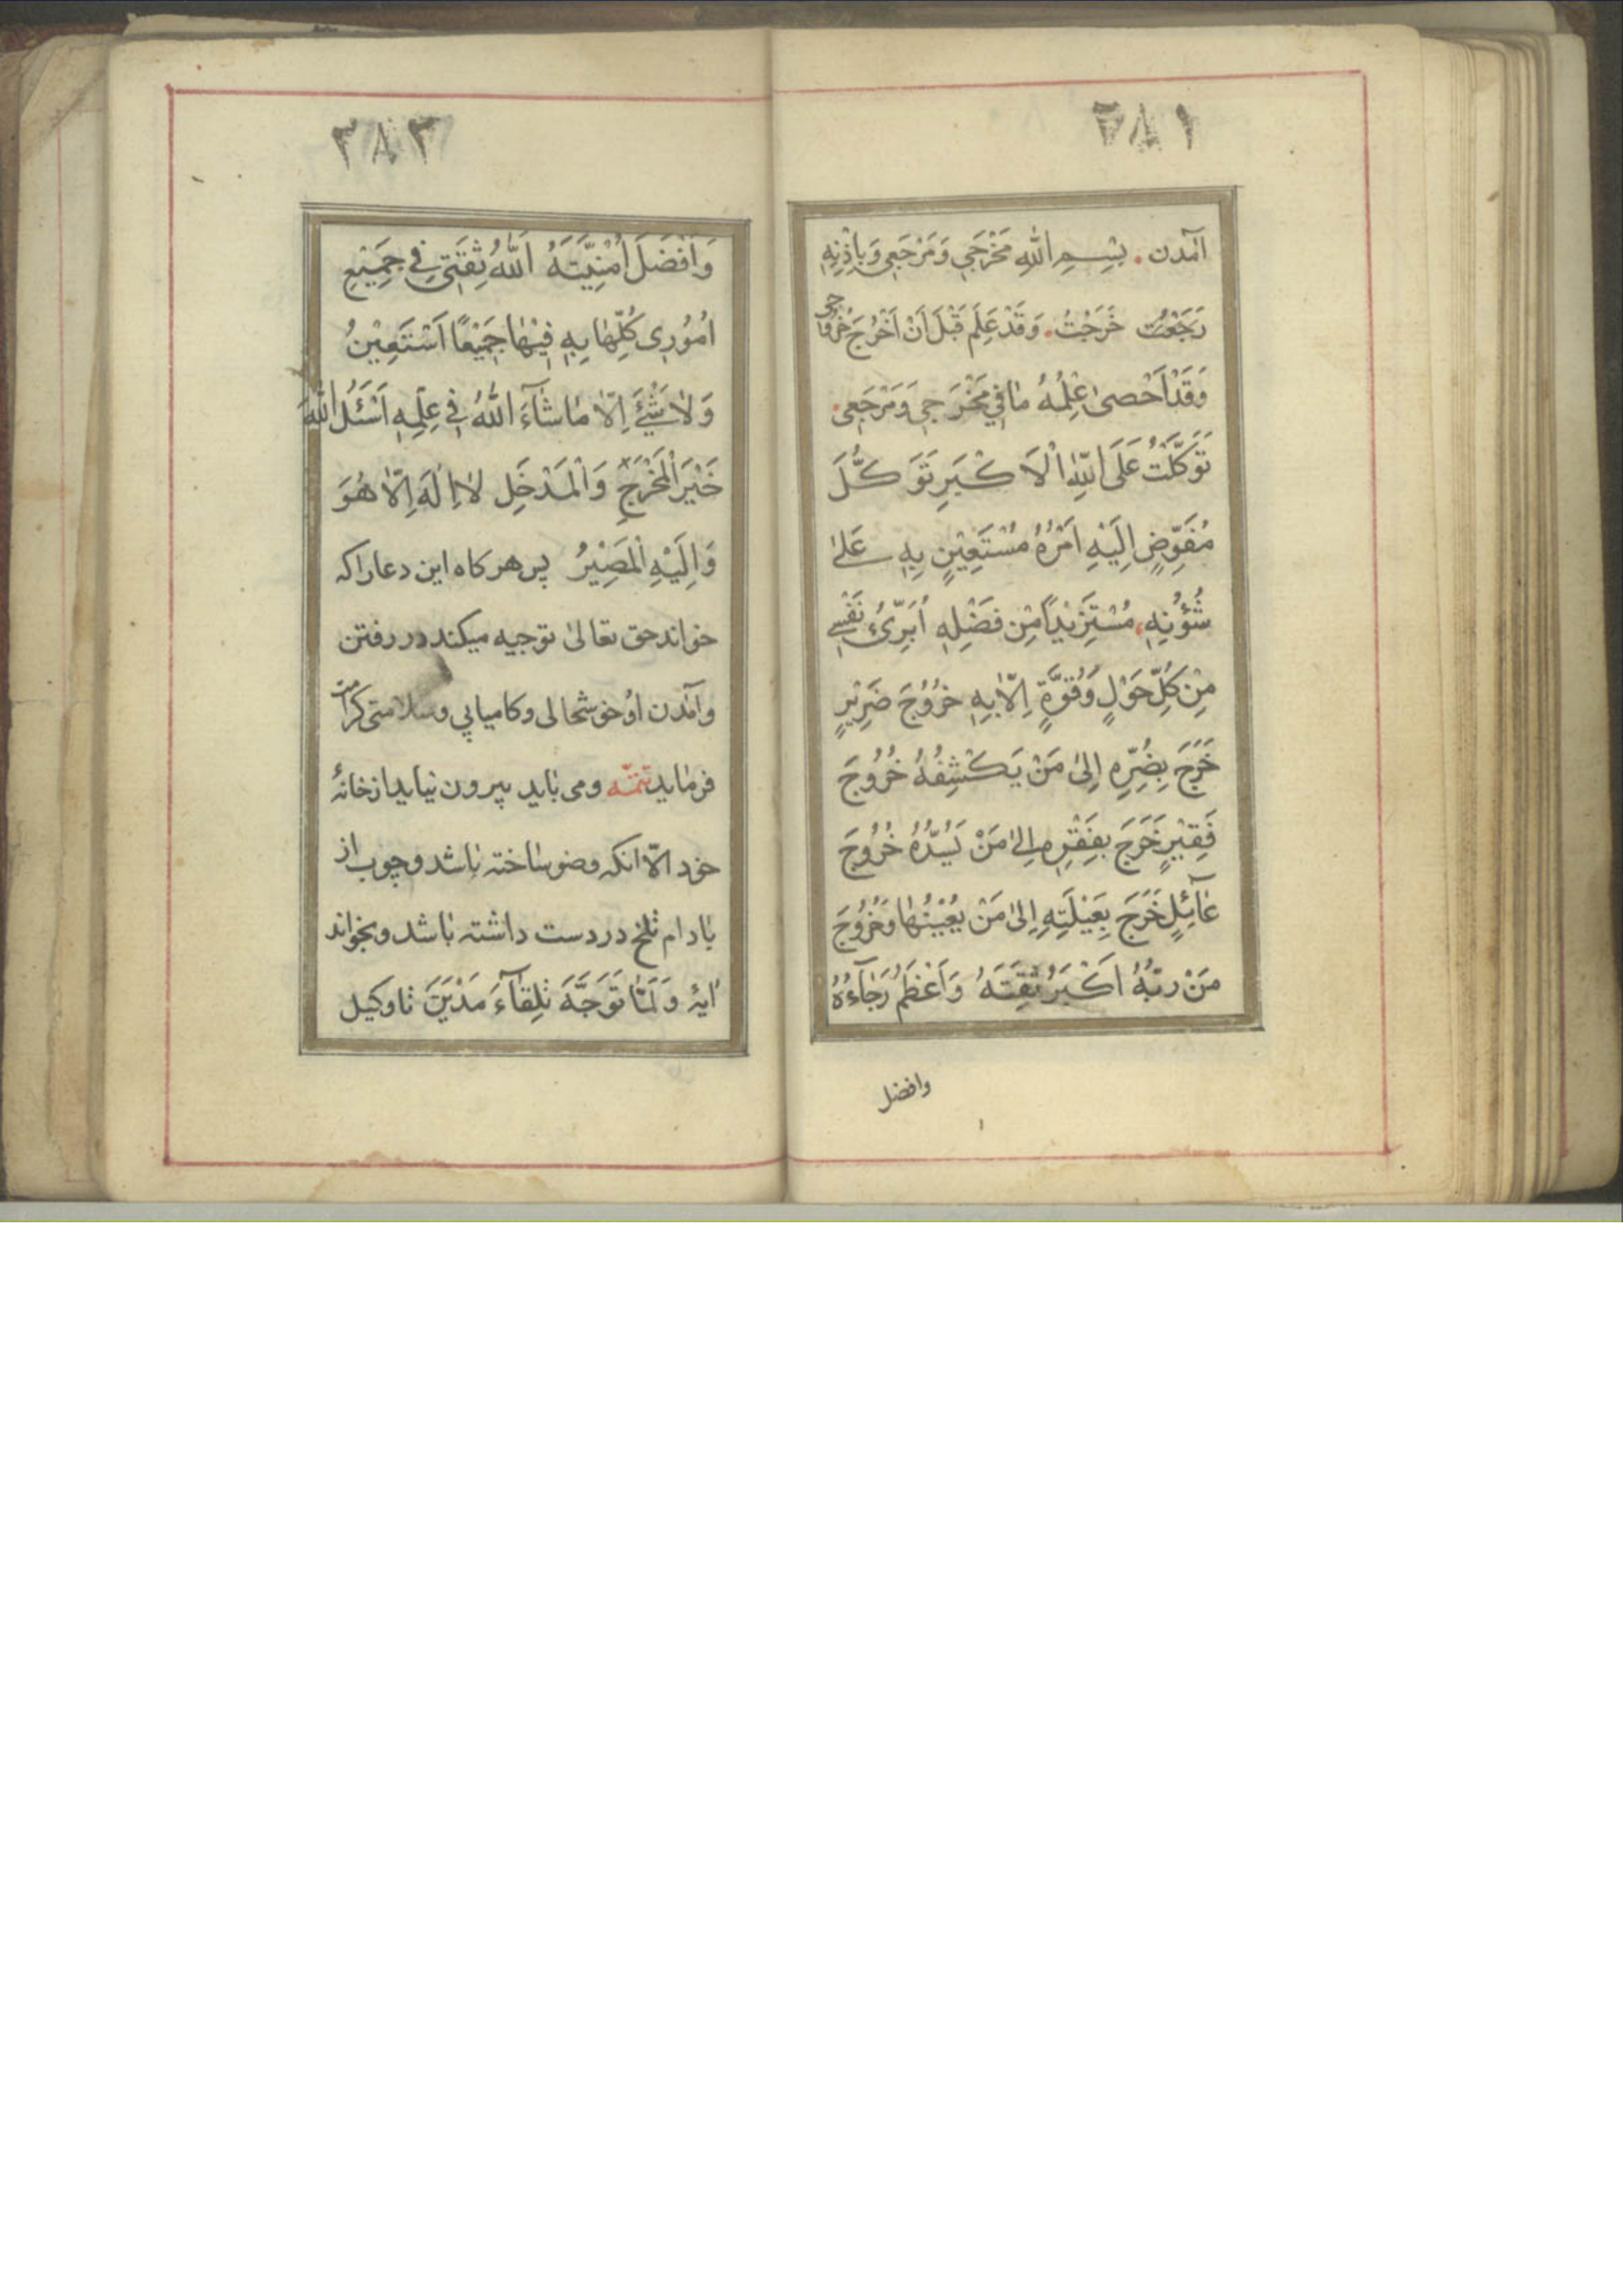 ۲۸۱
آمدن . بِسْمِ اللّٰهِ مَخْرَجِي وَمَرْجَعِي وَبِاِذْنِهٖ
رَجَعْتُ خَرَجْتُ . وَقَدْ عَلِمَ قَبْلَ اَنْ اَخْرُجَ خُرُوجِي
وَقَدْ اَحْصٰى عِلْمُهُ مَا فِي مَخْرَجِي وَمَرْجَعِي .
تَوَكَّلْتُ عَلَى اللّٰهِ الْاَكْبَرِ تَوَكُّلَ
مُفَوِّضٍ اِلَيْهِ اَمْرُهُ مُسْتَعِيْنٍ بِهٖ عَلٰى
شُؤُنِهٖ مُسْتَزِيْدًا مِنْ فَضْلِهٖ اُبَرِّئُ نَفْسِي
مِنْ كُلِّ حَوْلٍ وَقُوَّةٍ اِلَّا بِهٖ خُرُوْجَ ضَرِيْرٍ
خَرَجَ بِضُرِّهٖ اِلىٰ مَنْ يَكْشِفُهُ خُرُوْجَ
فَقِيْرٍ خَرَجَ بِفَقْرِهٖ اِلىٰ مَنْ يَسُدُّهُ خُرُوْجَ
عَآئِلٍ خَرَجَ بِعَيْلَتِهٖ اِلىٰ مَنْ يُعِيْنُهَا وَخُرُوْجَ
مَنْ رَبُّهُ اَكْبَرُ ثِقَتَهُ وَاَعْظَمُ رَجَآءُهُ
وافضل
۲۸۳
وَاَفْضَلَ اُمْنِيَّتَهُ اَللّٰهُ ثِقَتِي فِي جَمِيْعِ
اُمُوْرِي كُلِّهَا بِهٖ فِيْهَا جَمِيْعًا اَسْتَعِيْنُ
وَلَا شَيْءَ اِلَّا مَا شَآءَ اللّٰهُ فِي عِلْمِهٖ اَسْئَلُ اللّٰهَ
خَيْرَ الْمَخْرَجِ وَالْمَدْخَلِ لَا اِلٰهَ اِلَّا هُوَ
وَاِلَيْهِ الْمَصِيْرُ پس هرکاه این دعا را که
خواند حق تعالیٰ توجیه میکند در رفتن
و آمدن او خوشحالی و کامیابی و سلامتی کرامت
فرماید تتمّه و می باید بیرون نیاید از خانهٔ
خود الّا انکه وضو ساخته باشد و چوب از
بادام تلخ در دست داشته باشد و بخواند
ایهٔ وَلَمَّا تَوَجَّهَ تِلْقَآءَ مَدْيَنَ تا وکیل